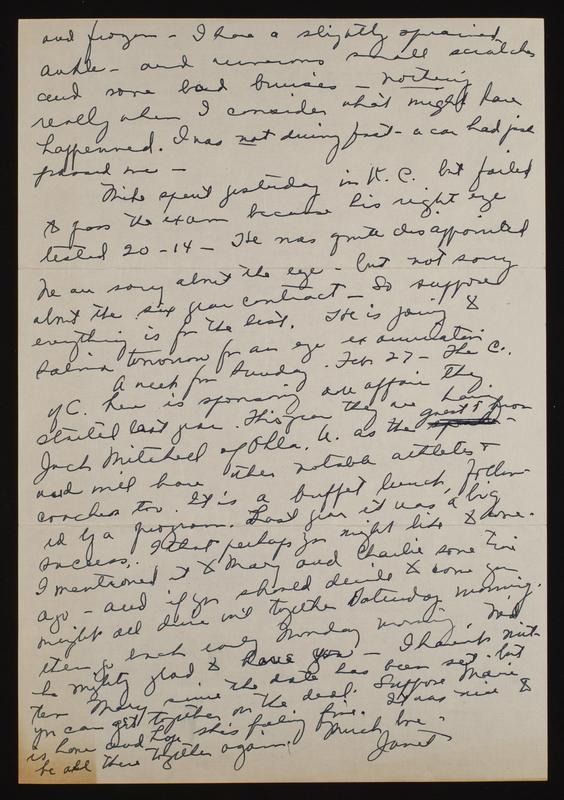 and frozen - I have a slightly sprained
ankle - and numerous small scratches
and some bad bruises - nothing
really when I consider what might have
happenned. I was not driving fast - a car had just
passed me -
Mike spent yesterday in K.C. but failed
to pass the exam because his right eye
tested 20-14 - He was quite disappointed
We are sorry about the eye - but not sorry
about the six year contract - So suppose
everything is for the best. He is going to
Salina tomorrow for an eye examination
A week from Sunday. Feb 27 - The C.
of C. here is sponsoring an affair they
started last year. This year they are having
Jack Mitchell of Okla. U. as the guest
and will have other notable athletes &
coaches too. It is a buffet lunch, follow-
ed by a program. Last year it was a big
success. I that perhaps you might like to come.
I mentioned it to Mary and Charlie some time
ago - and if you should decide to come you
might all drive out together Saturday morning.
then go back early Monday morning. We'd
be mighty glad to have you - I haven't writ-
ten Mary since the date has been set - but
you can get together on the deal. Suppose Marie
is home and hope she's feeling fine. It was nice to
be all there together again. Much love -
Janet